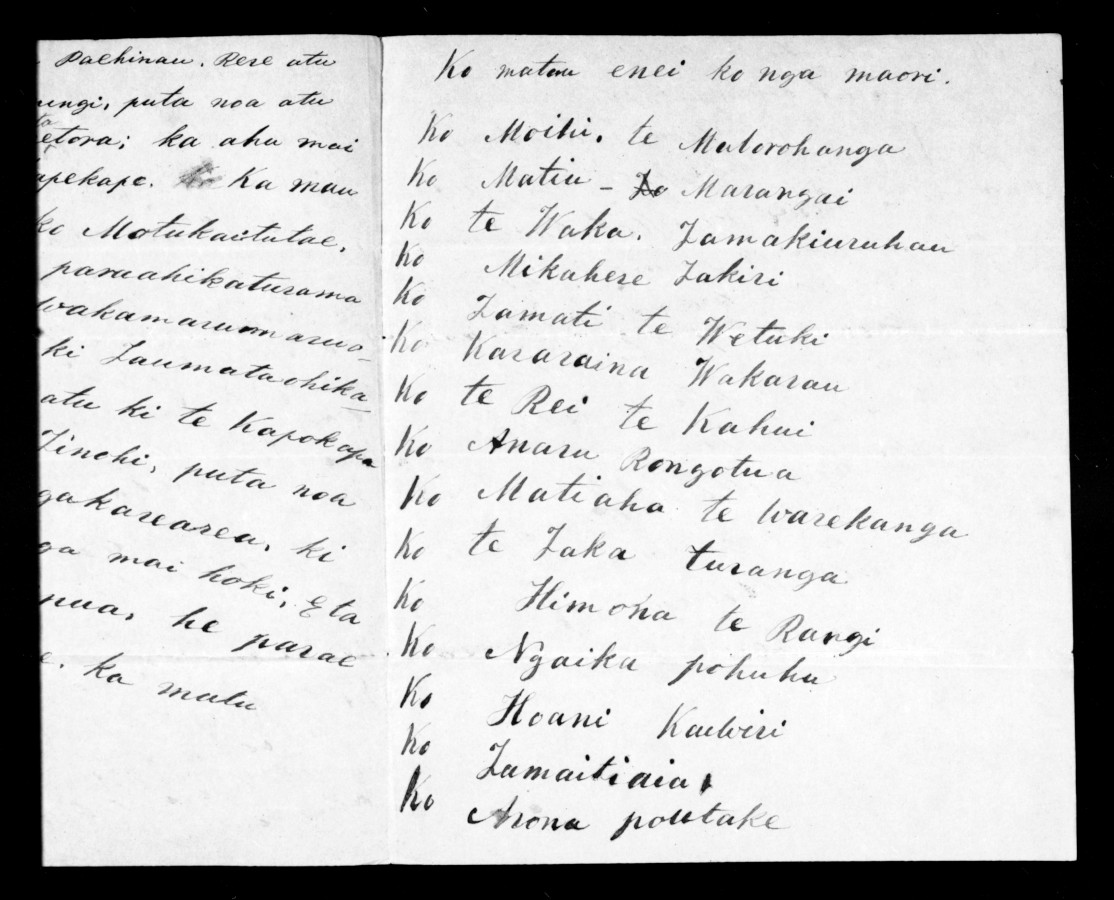 Paehinau. Rere atu
ungi, puta noa atu
ta
etora; ka ahu mai
apekape. Ka mau
ko Motukaitutae,
paruahikaturama
wakamarumaru
ki Taumataohika-
atu ki te Kapokapo
Tinohi, puta noa
gakarearea, ki
ga mai hoki, Eta
pua, he parae
e. ka mutu
Ko matou enei ko nga maori.
Ko Moihi. te Matorohanga
Ko Matiu - Marangai
Ko te Waka. Tamakiuruhau
Ko Mikahere Takiri
Ko Tamati te Wetuki
Ko Kararaina Wakarau
Ko te Rei te Kahui
Ko Anaru Rongotua
Ko Matiaha te Warekanga
Ko te Taka turanga
Ko Himona te Rangi
Ko Ngaika pohuhu
Ko Hoani Kawiri
Ko Tamaitiaia
Ko Arona poutake